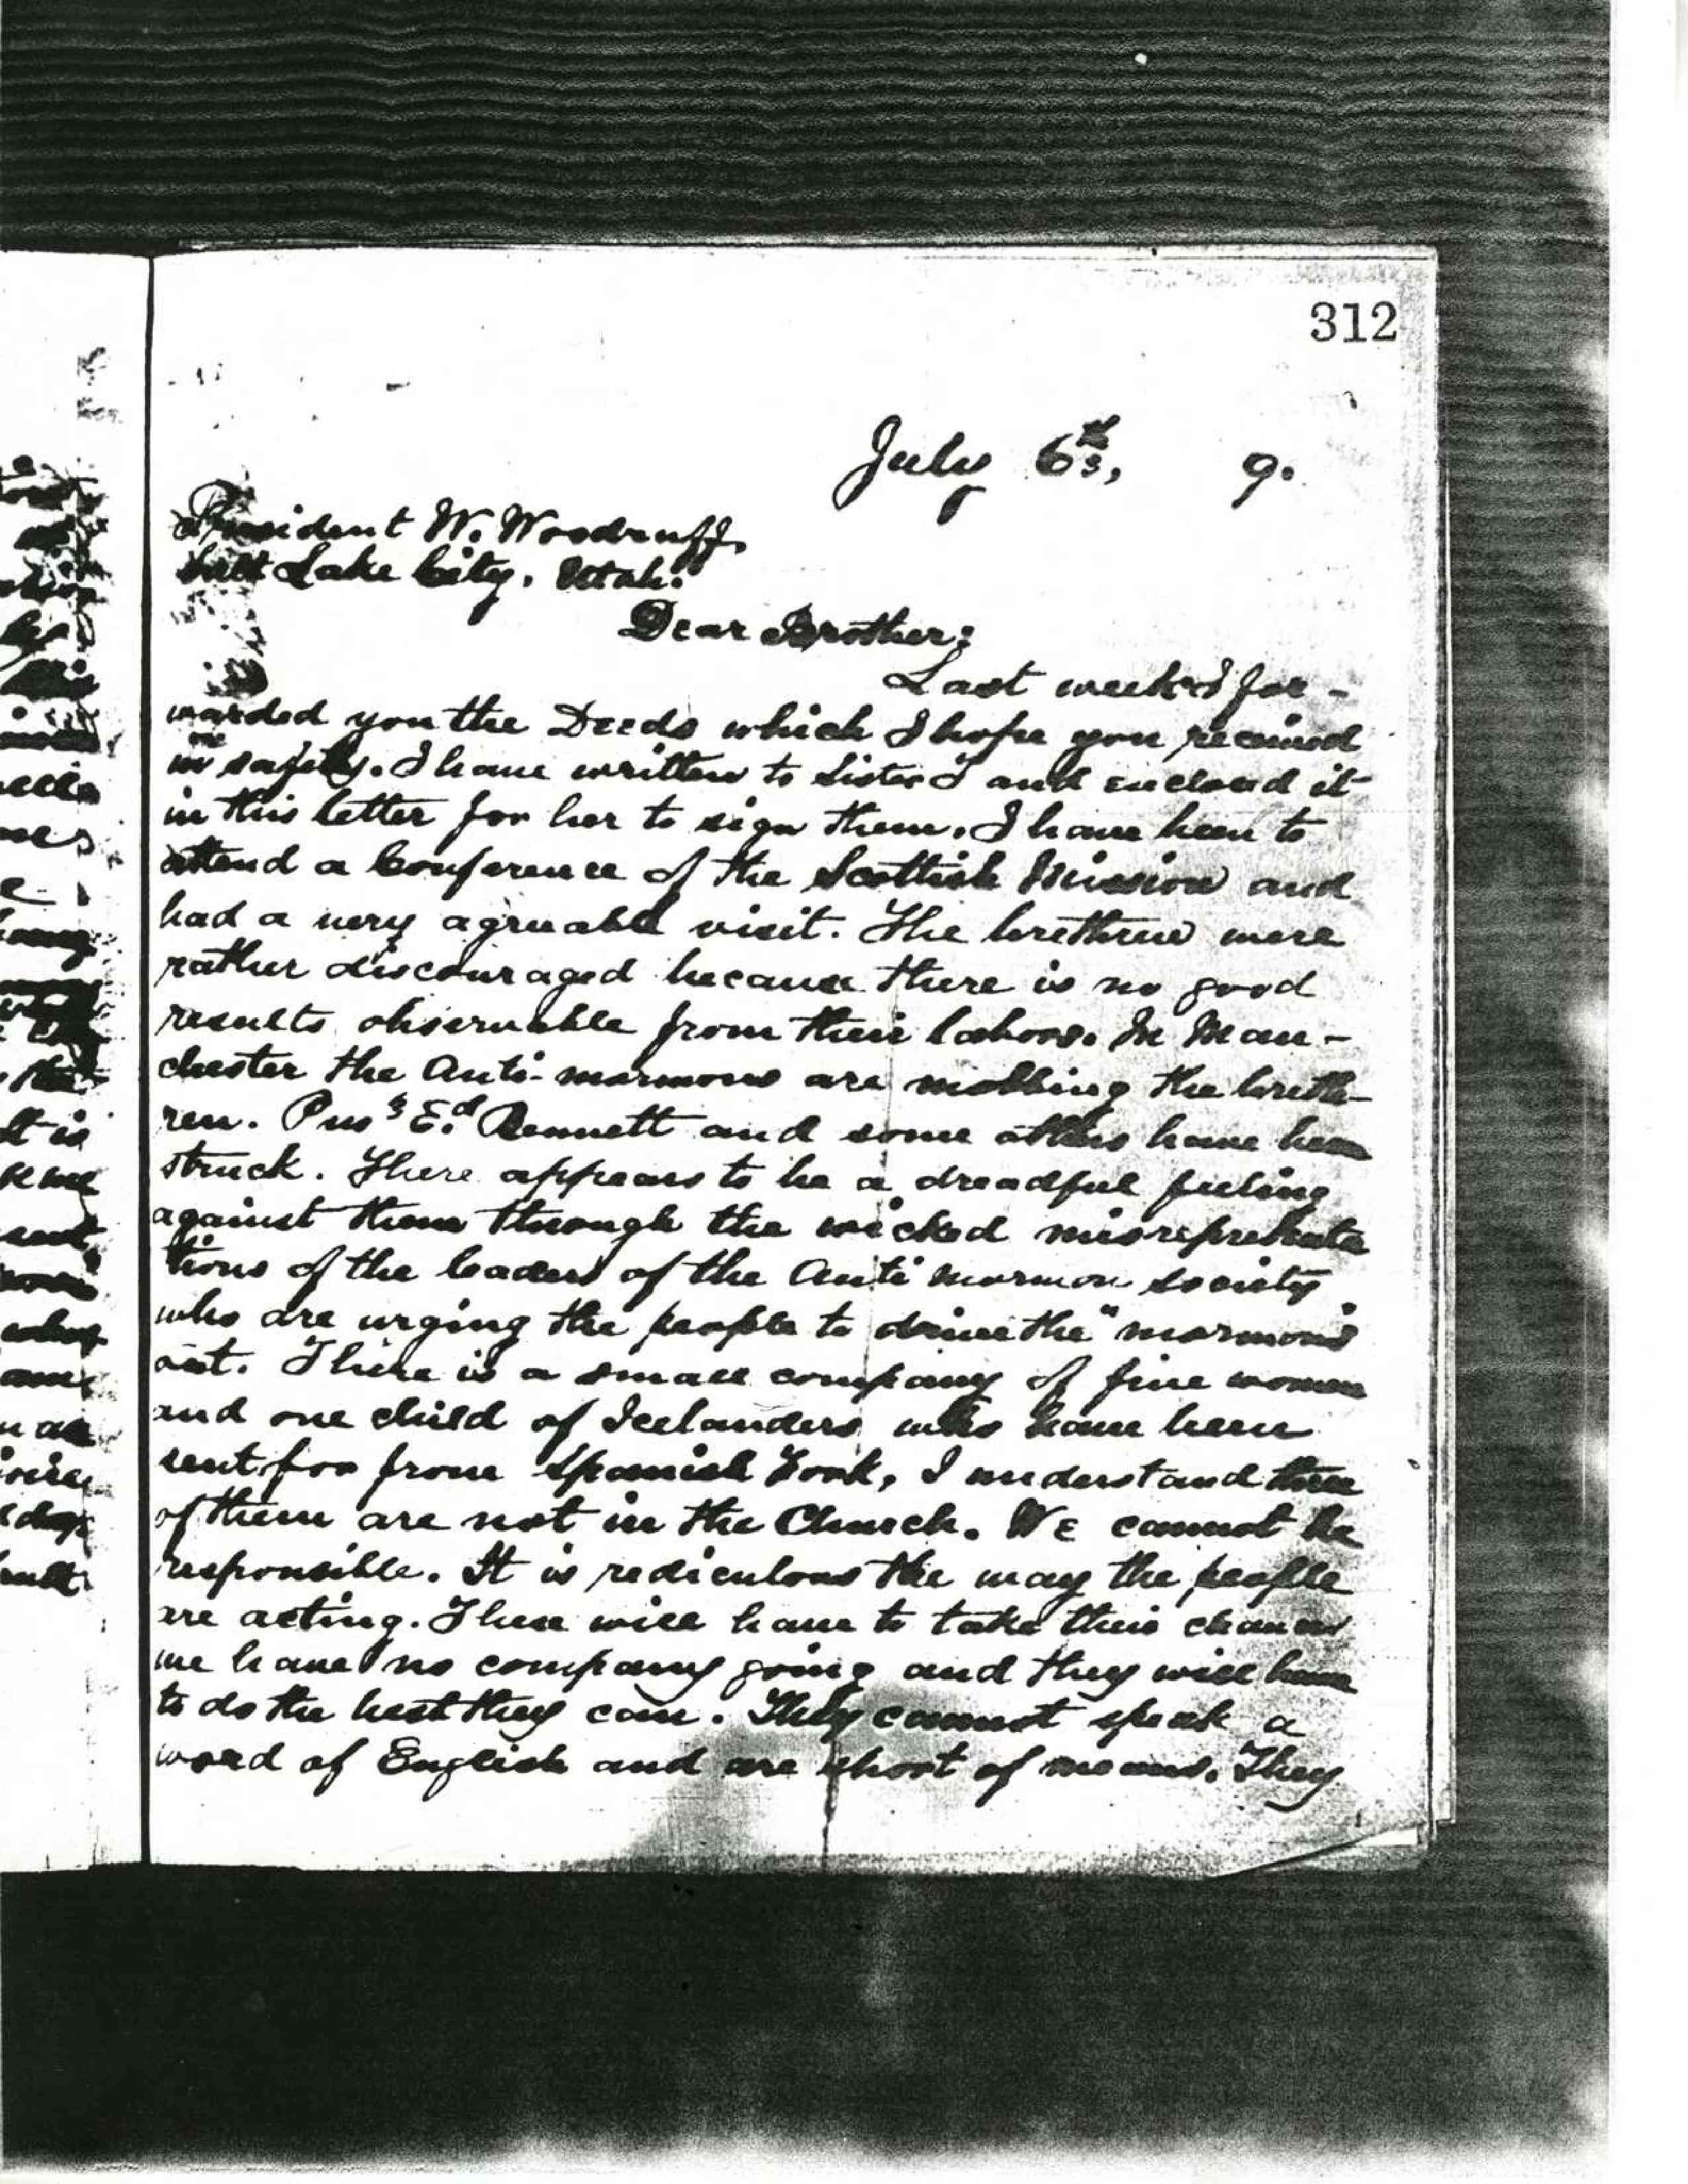 312
July 6th, 9.
President W. Woodruff,
Salt Lake City, Utah.
Dear Brother:
Last week I for-
warded you the Deeds which I hope you received
in safety. I have written to Sister T and enclosed it
in this letter for her to sign them. I have been to
attend a Conference of the Scottish Mission and
had a very agreeable visit. The brethren were
rather discouraged because there is no good
results observable from their labors. In Man-
chester the Anti-mormons are mobbing the breth-
ren. Pres Ed. Bennett and some others have been
struck. There appears to be a dreadful feeling
against them through the wicked misrepresenta
tions of the leaders of the Anti Mormon Society
who are urging the people to drive the "mormons"
out. There is a small company of five women
and one child of Icelanders who have been
sent for from Spanish Fork, I understand three
of them are not in the Church. We cannot be
responsible. It is rediculous the way the people
are acting. These will have to take their chances
we have no company going and they will have
to do the best they can. They cannot speak a
word of English and are short of means. They